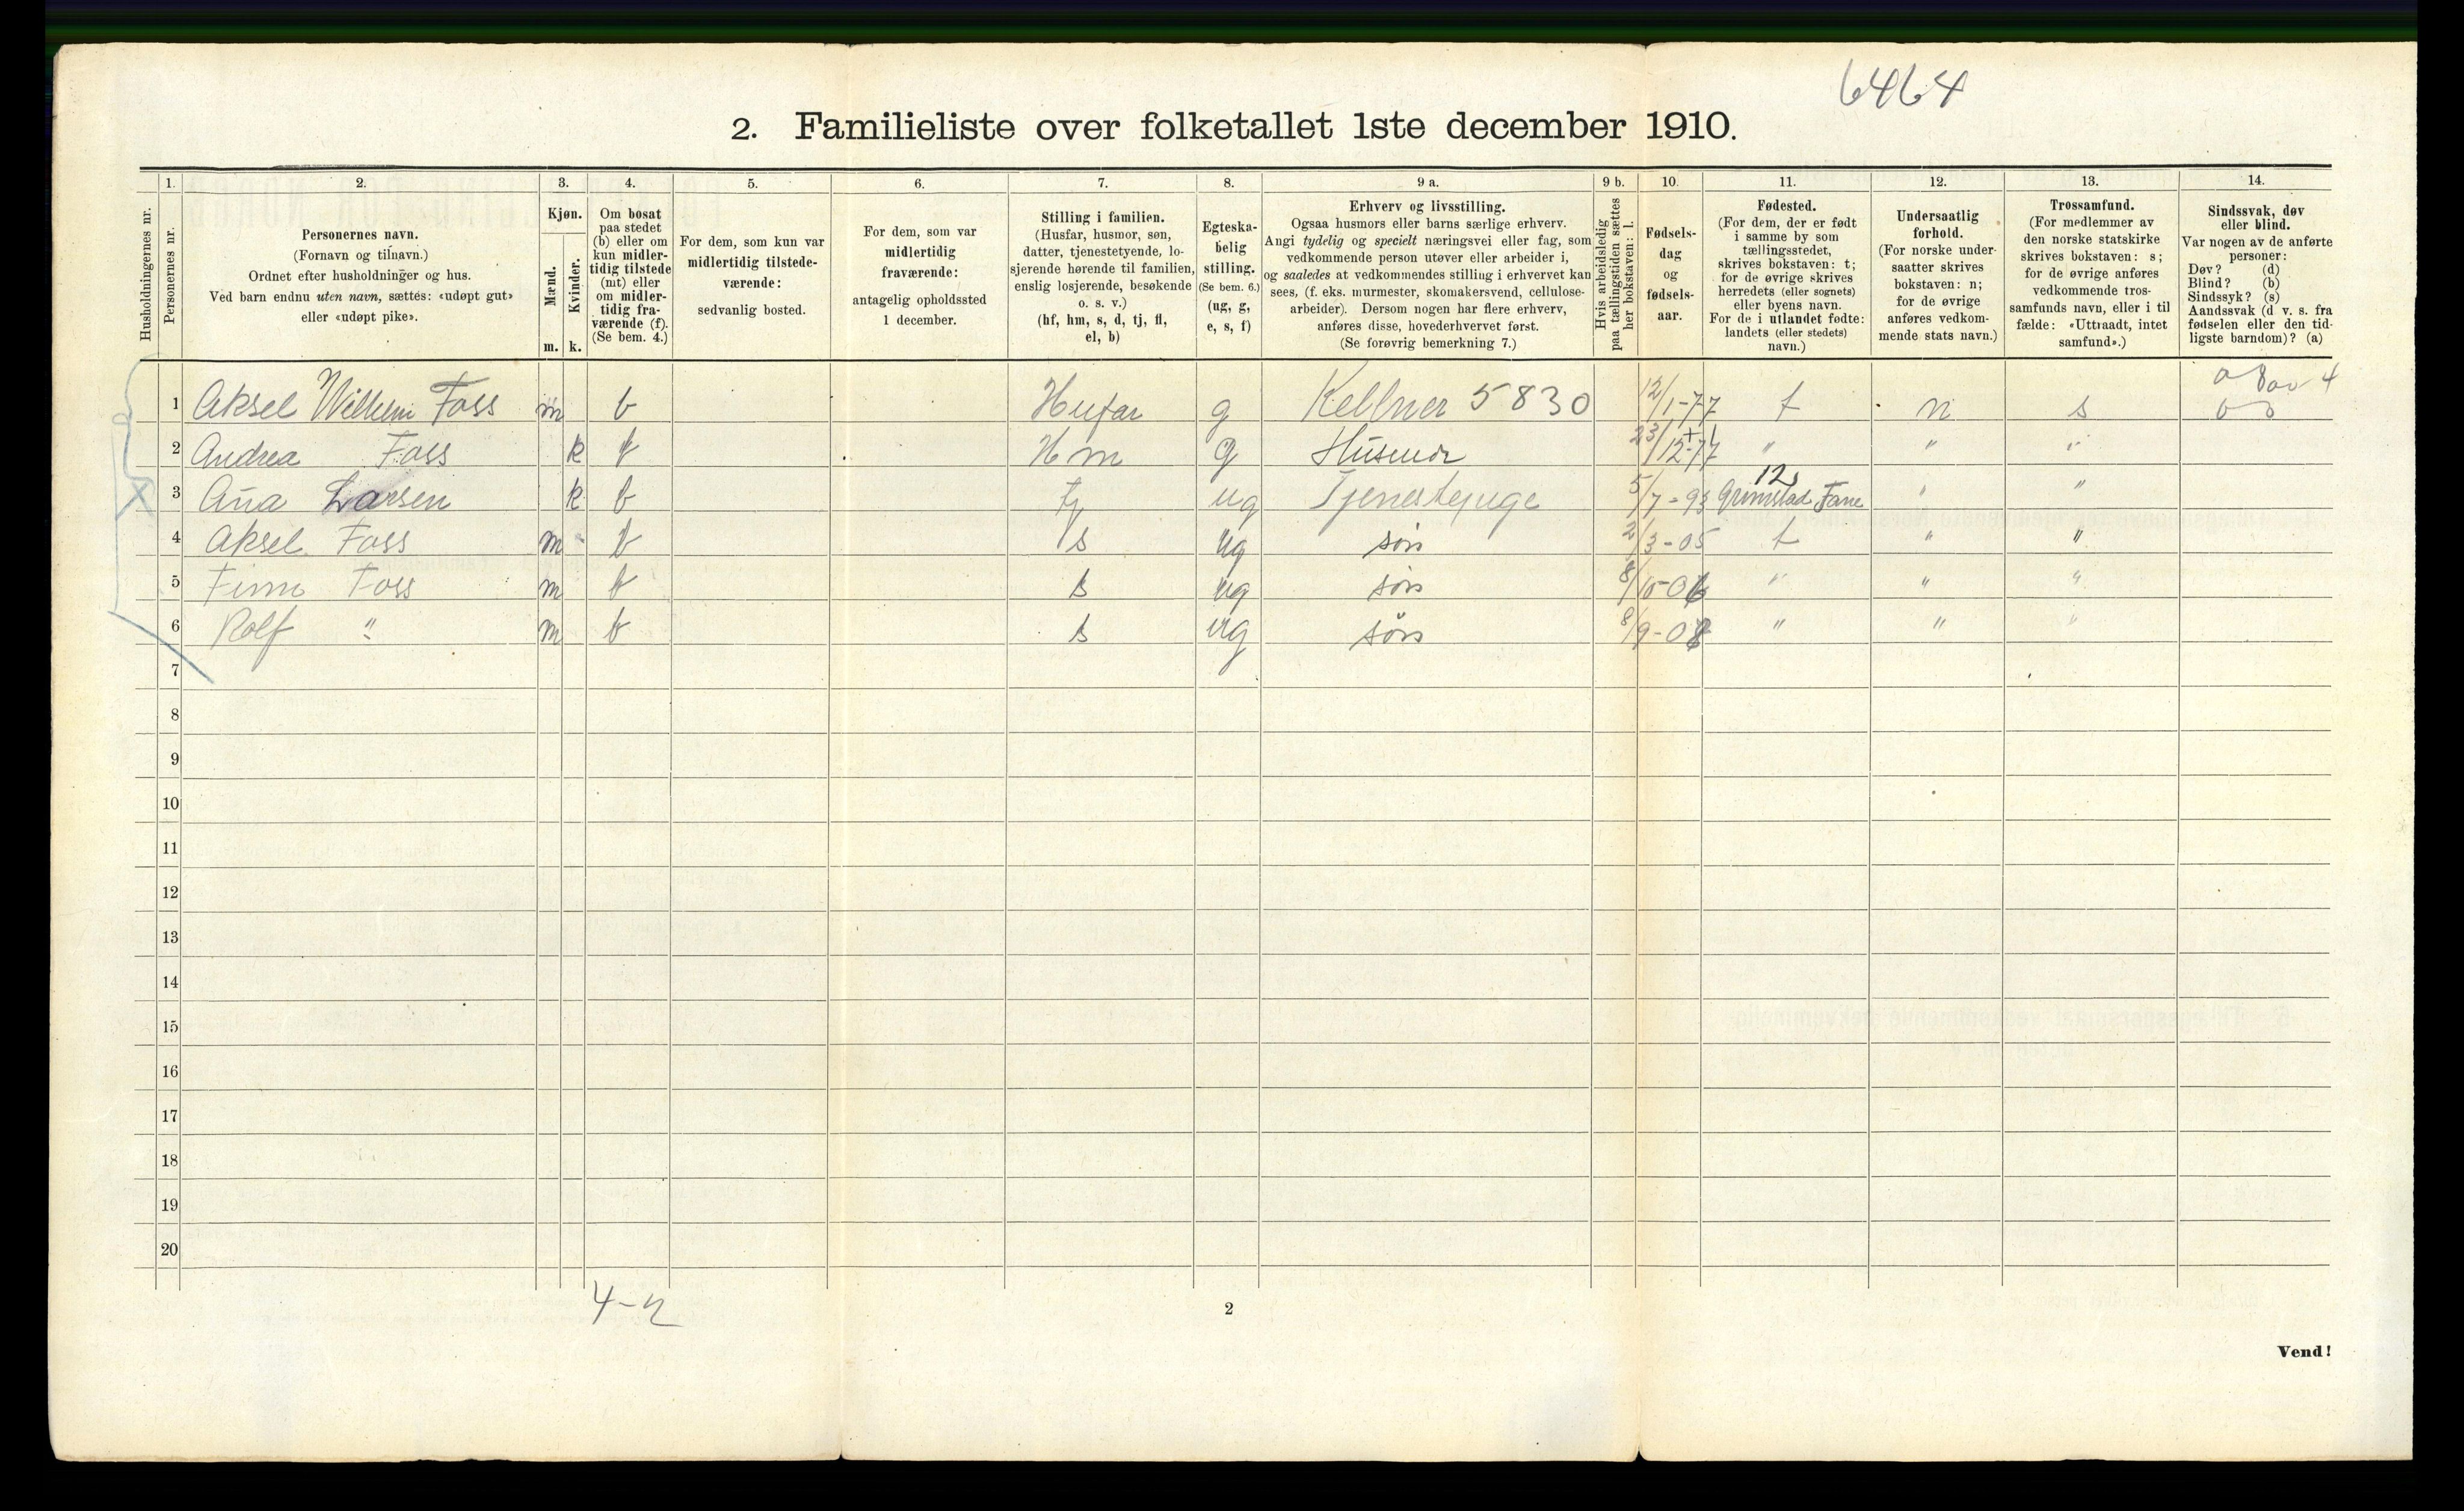 6464
2. Familieliste over folketallet 1ste december 1910.
1. 2. 3. 4. 5. 6. 7. 8. 9 a. 9 b. 10. 11. 12. 13. 14.
Husholdningernes nr.
Personernes nr.
Personernes navn.
(Fornavn og tilnavn.)
Ordnet efter husholdninger og hus.
Ved barn endnu uten navn, sættes: «udøpt gut»
eller «udøpt pike».
Kjøn.
Mænd.
m.
Kvinder.
k.
Om bosat
paa stedet
(b) eller om
kun midler-
tidig tilstede
(mt) eller
om midler-
tidig fra-
værende (f).
(Se bem. 4.)
For dem, som kun var
midlertidig tilstede-
værende:
sedvanlig bosted.
For dem, som var
midlertidig
fraværende:
antagelig opholdssted
1 december.
Stilling i familien.
(Husfar, husmor, søn,
datter, tjenestetyende, lo-
sjerende hørende til familien,
enslig losjerende, besøkende
o. s. v.)
(hf, hm, s, d, tj, fl,
el, b)
Egteska-
belig
stilling.
(Se bem. 6.)
(ug, g,
e, s, f)
Erhverv og livsstilling.
Ogsaa husmors eller barns særlige erhverv.
Angi tydelig og specielt næringsvei eller fag, som
vedkommende person utøver eller arbeider i,
og saaledes at vedkommendes stilling i erhvervet kan
sees, (f. eks. murmester, skomakersvend, cellulose-
arbeider). Dersom nogen har flere erhverv,
anføres disse, hovederhvervet først.
(Se forøvrig bemerkning 7.)
Hvis arbeidsledig
paa tællingstiden sættes
her bokstaven: l.
Fødsels-
dag
og
fødsels-
aar.
Fødested.
(For dem, der er født
i samme by som
tællingsstedet,
skrives bokstaven: t;
for de øvrige skrives
herredets (eller sognets)
eller byens navn.
For de i utlandet fødte:
landets (eller stedets)
navn.)
Undersaatlig
forhold.
(For norske under-
saatter skrives
bokstaven: n;
for de øvrige
anføres vedkom-
mende stats navn.)
Trossamfund.
(For medlemmer av
den norske statskirke
skrives bokstaven: s;
for de øvrige anføres
vedkommende tros-
samfunds navn, eller i til
fælde: «Uttraadt, intet
samfund».)
Sindssvak, døv
eller blind.
Var nogen av de anførte
personer:
Døv? (d)
Blind? (b)
Sindssyk? (s)
Aandssvak (d. v. s. fra
fødselen eller den tid-
ligste barndom)? (a)
1 Aksel Wilhelm Foss m b Husfar g Kellner 5830 12/1-77 t n s
2 Andrea Foss k b Hm g Husmor 23/12-77 " " "
3 Ana Larsen k b tj ug Tjenestepige 5/7-93 Grimstad Fane " "
12
4 Aksel Foss m b s ug søn 2/3-05 t " "
5 Finn Foss m b s ug søn 8/10-06 " " "
6 Rolf " m b s ug søn 8/9-08 " " "
7
8
9
10
11
12
13
14
15
16
17
18
19
20
4-2
2
Vend!